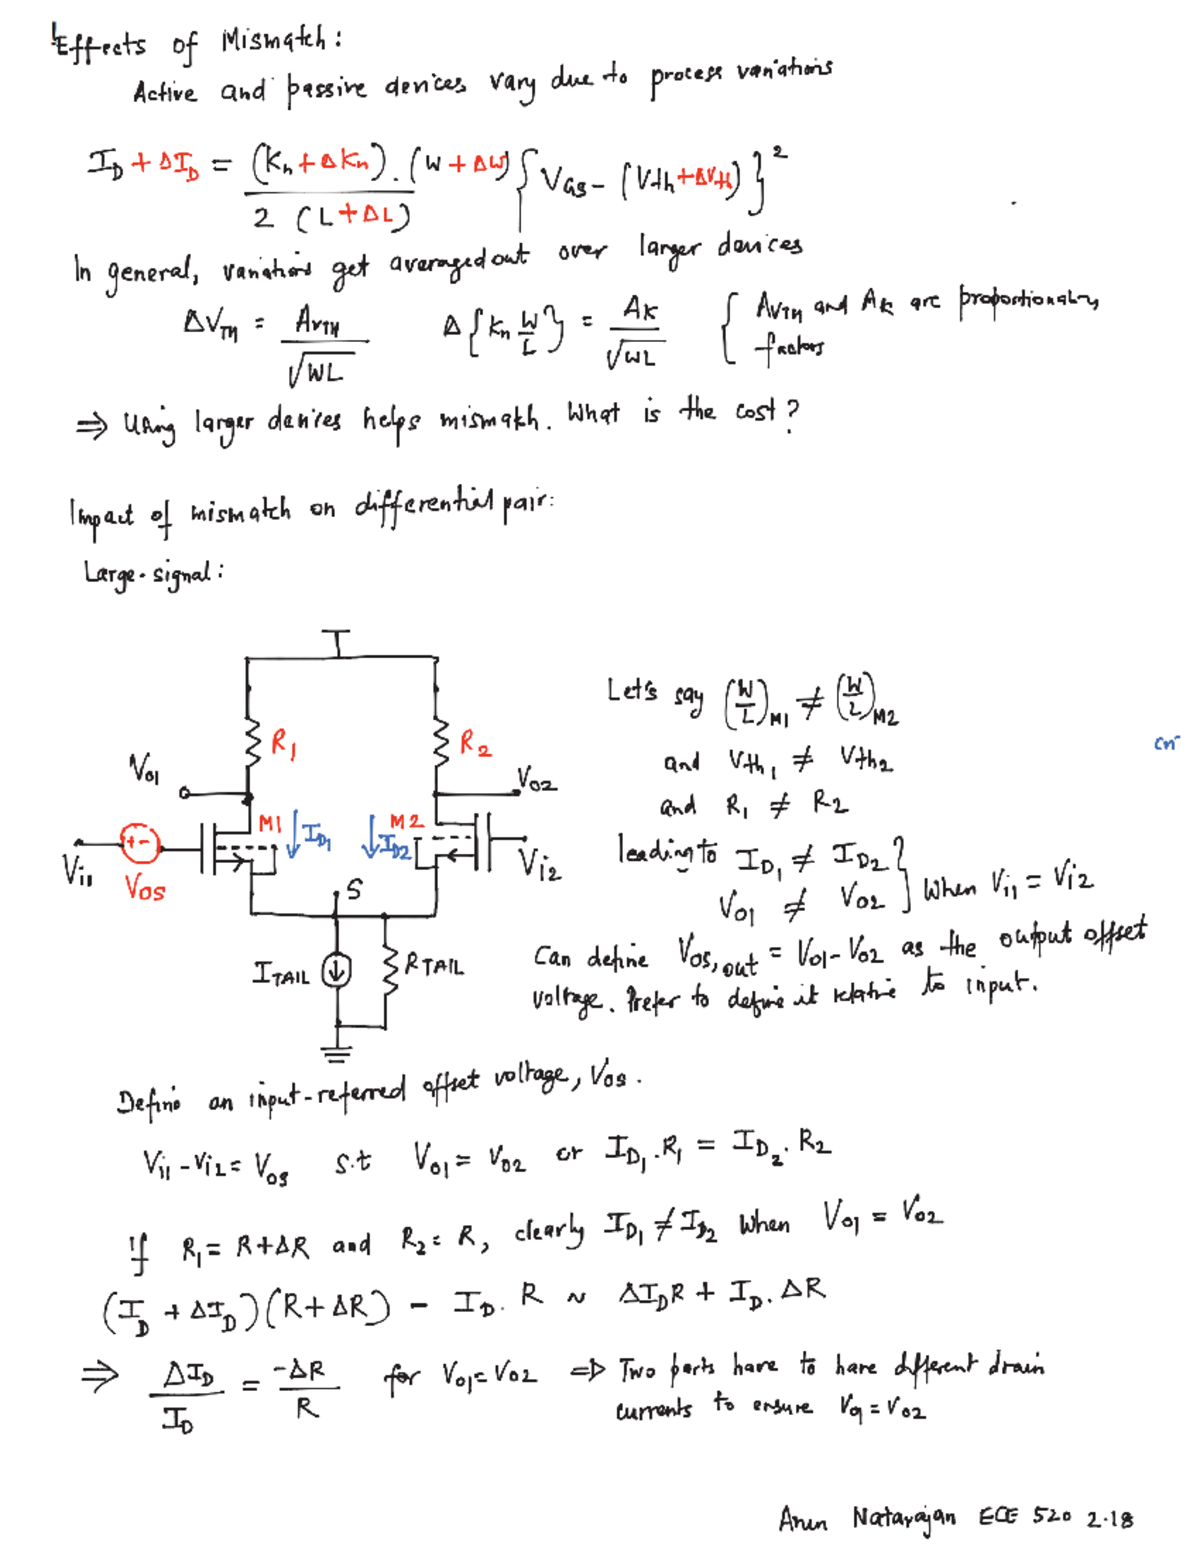 Effects of Mismatch:
Active and passive devices vary due to process variations
I_D + ΔI_D = (K_n + ΔK_n) . (W + ΔW) / 2 (L + ΔL) { V_GS - (V_th + ΔV_th) }^2
In general, variations get averaged out over larger devices
ΔV_TH = A_VTH / √WL   Δ{ K_n W/L } = A_K / √WL   { A_VTH and A_K are proportionality factors
⇒ Using larger devices helps mismatch. What is the cost?
Impact of mismatch on differential pair:
Large-signal:
R_1
R_2
V_o1
V_o2
M1
I_D1
M2
I_D2
V_i1
+-
V_OS
V_i2
S
I_TAIL
R_TAIL
Let's say (W/L)_M1 ≠ (W/L)_M2
cm
and V_th1 ≠ V_th2
and R_1 ≠ R_2
leading to I_D1 ≠ I_D2 }
V_o1 ≠ V_o2 } when V_i1 = V_i2
Can define V_OS,out = V_o1 - V_o2 as the output offset
voltage. Prefer to define it relative to input.
Define an input-referred offset voltage, V_OS.
V_i1 - V_i2 = V_os s.t V_o1 = V_o2 or I_D1 . R_1 = I_D2 . R_2
If R_1 = R+ΔR and R_2 = R, clearly I_D1 ≠ I_D2 when V_o1 = V_o2
(I_D + ΔI_D)(R+ΔR) - I_D . R ~ ΔI_D R + I_D . ΔR
⇒ ΔI_D / I_D = -ΔR / R for V_o1 = V_o2 ⇒ Two parts have to have different drain
currents to ensure V_o1 = V_o2
Arun Natarajan ECE 520 2.18